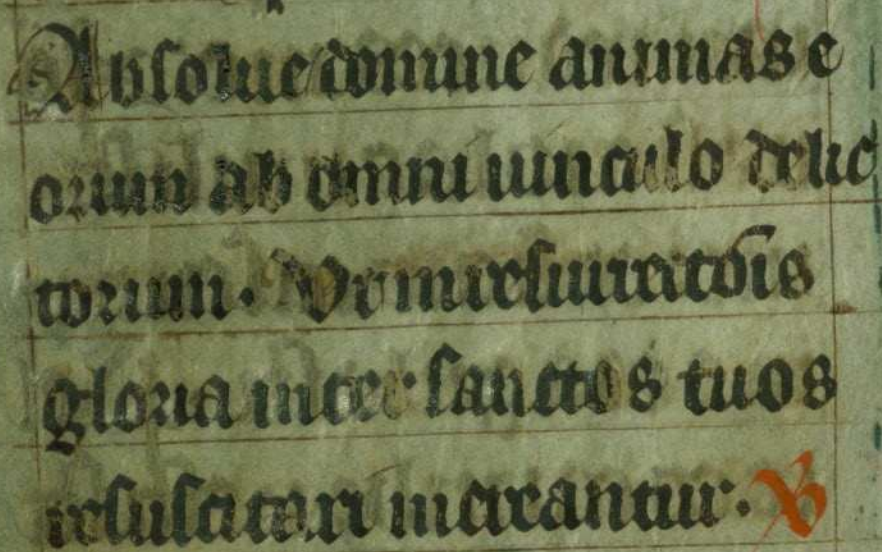 Absolue domine animas e
orum ab omni uinculo delic
torum. Vt in resurrectōis
gloria inter sanctos tuos
resuscitari mereantur.